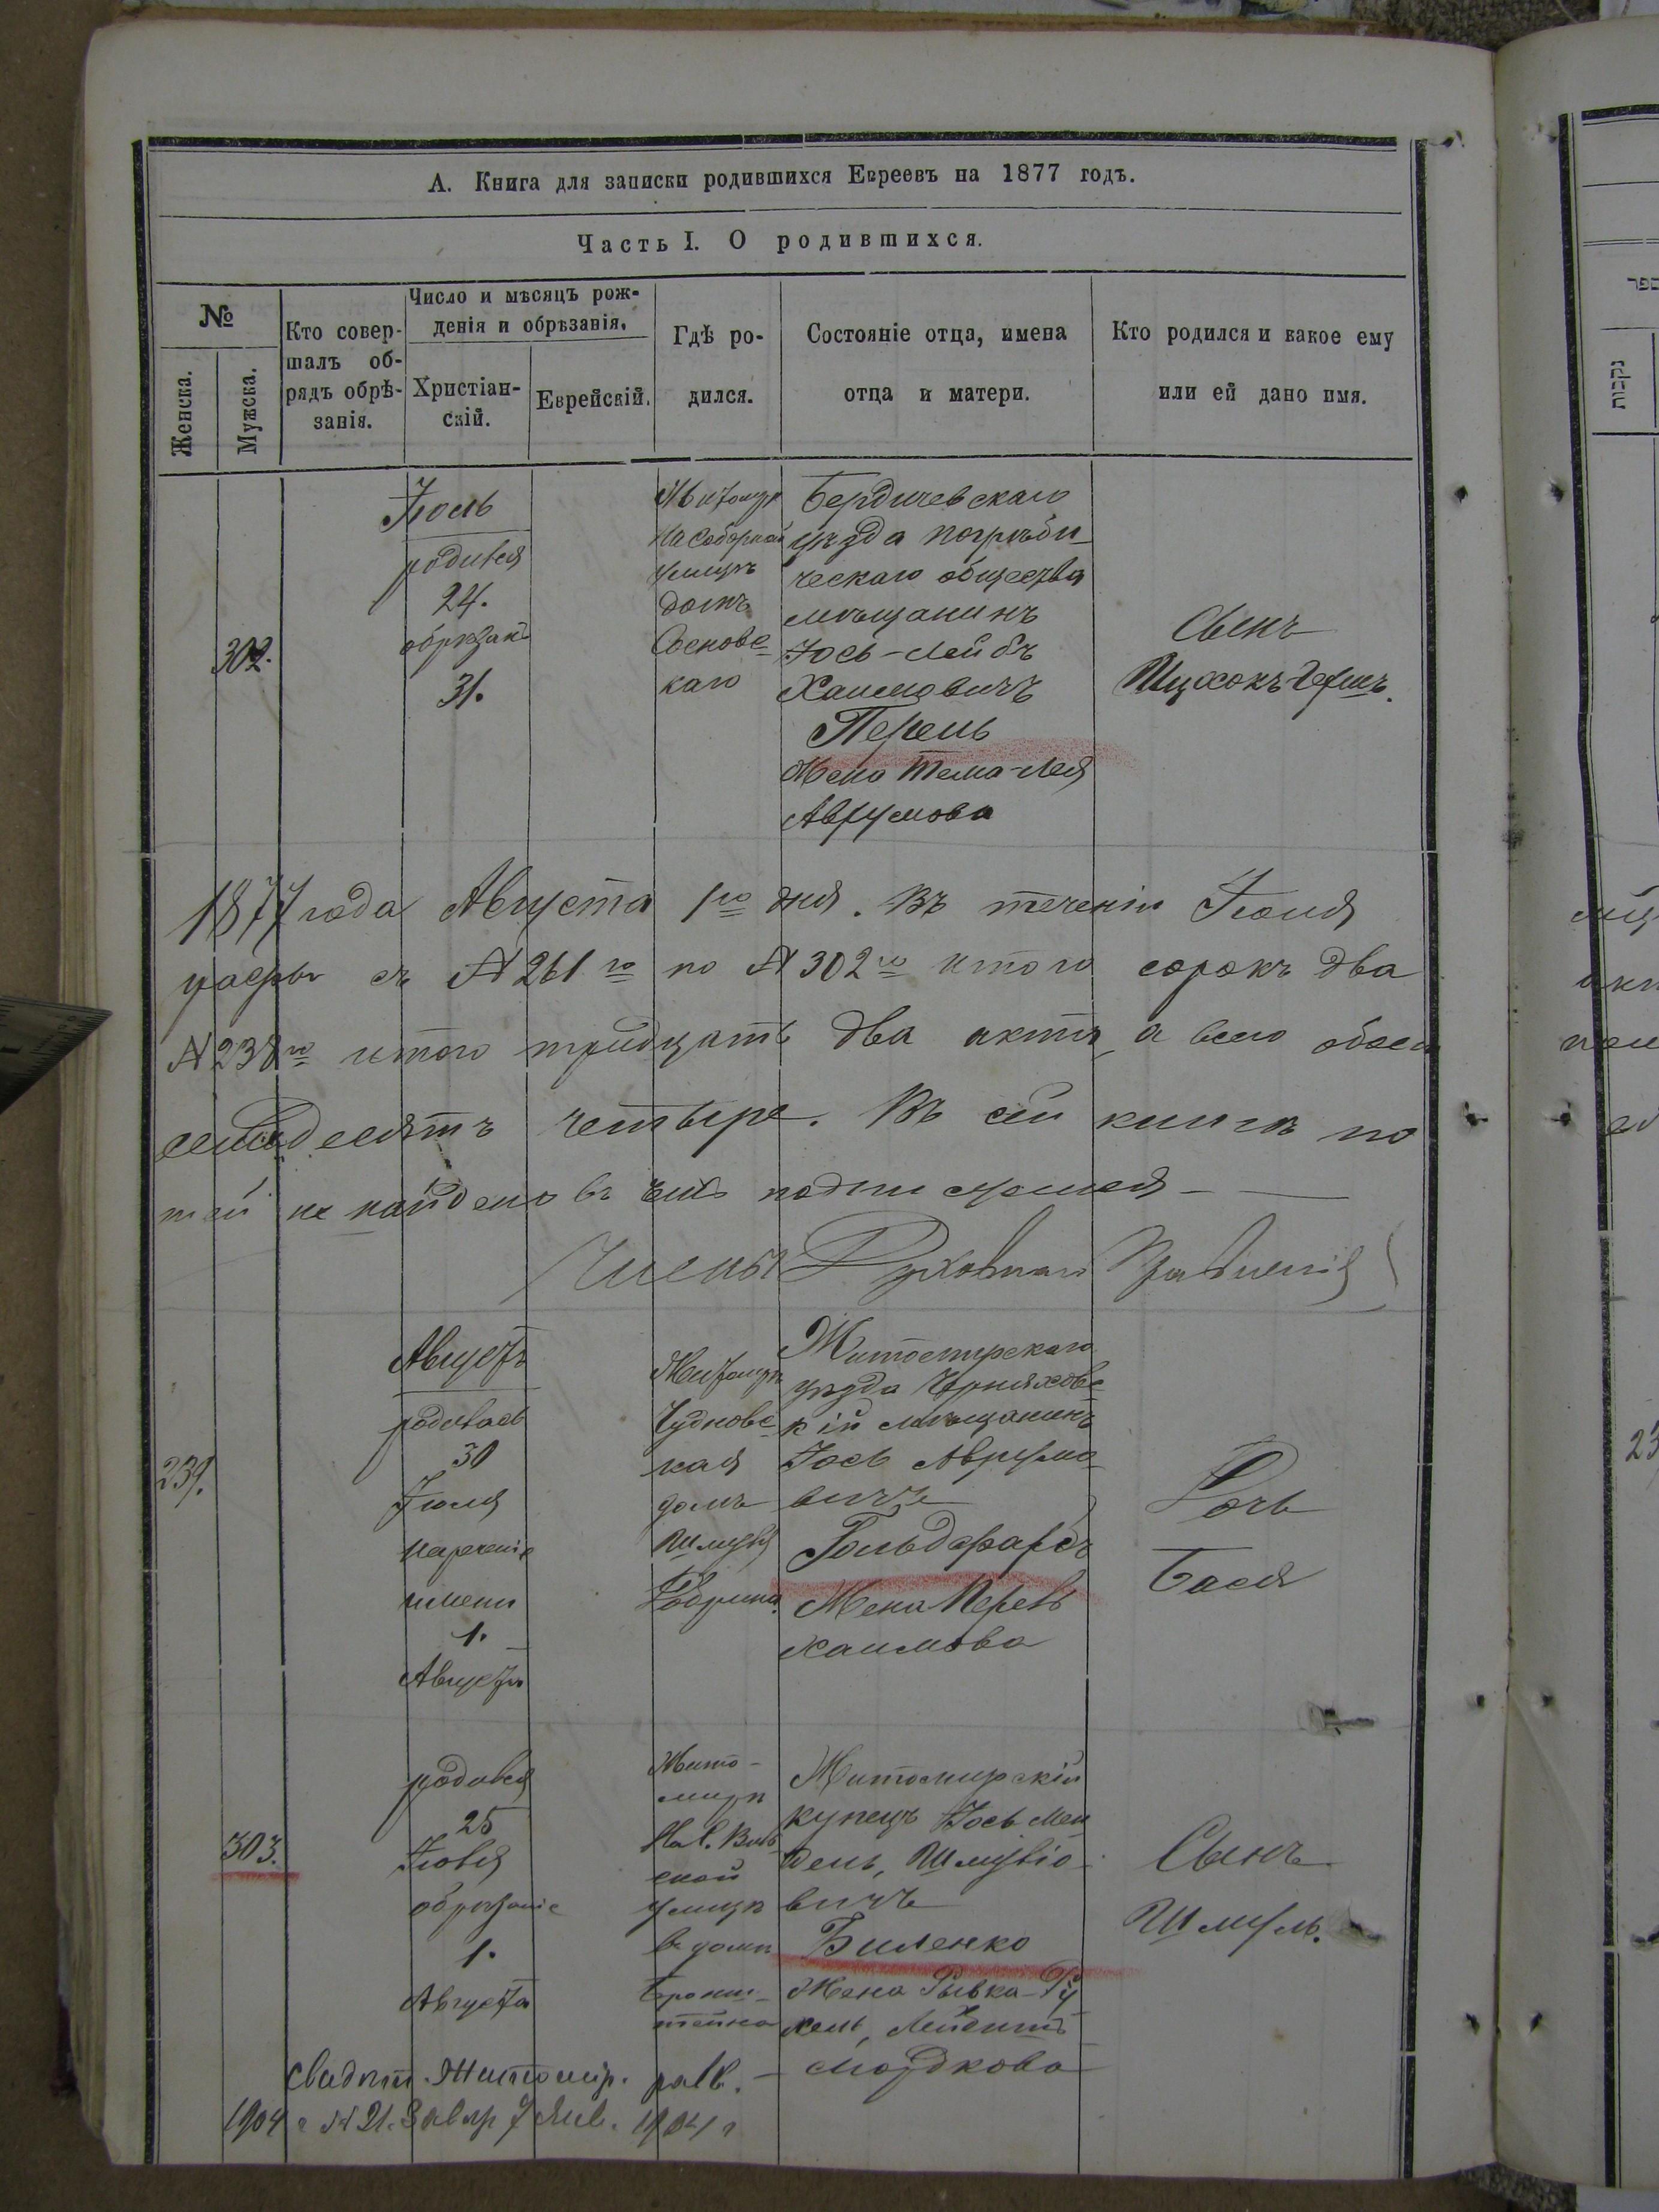 А. Книга для записки родившихся Евреевъ на 1877 годъ.
Часть I. О родившихся.
№
Женска.
Мужска.
Кто совер-
шалъ об-
рядъ обрѣ-
занія.
Число и мѣсяцъ рож-
денія и обрѣзанія.
Христіан-
скій.
Еврейскій.
Гдѣ ро-
дился.
Состояніе отца, имена
отца и матери.
Кто родился и какое ему
или ей дано имя.
302.
Іюль
родився
24.
обрезанъ
31.
Житомиръ
на Соборной
улицѣ
домъ
Соснове-
каго
Бердичевскаго
уѣзда погреби-
ческаго общества
мѣщанинъ
Іось-Лейбъ
Хаимовичъ
Перель
Жена Тема-Лея
Аврумова
Сынъ
Ицхокъ-Гершъ.
1877 года Августа 1го дня. Въ теченіи Іюля
съ № 261го по № 302го итого сорокъ два
№ 238го итого тридцать два акта, а всего обоего
семьдесятъ четыре. Въ сей книгѣ по
тей не найдено въ чемъ подписуемся
Члены Духовнаго Правленія
239.
Августъ
родилась
30
Іюля
наречение
имени
1.
Августа
Житомиръ
Чудновс-
кая
домъ
Шмуля
Житомирскаго
уѣзда Черняховс-
кій мѣщанинъ
Іось Аврумо-
вичъ
Гольдфарбъ
Жена Перль
Хаимова
Дочь
Бася
303.
родився
25
Іюля
обрезаніе
1.
Августа
Жито-
миръ
На Б. Виль
ской
улицѣ
въ домѣ
Бронш-
тейна
Житомирскій
купецъ Іось Мен
дель, Шмуліо-
вичъ
Биленко
Жена Рывка-Ру
хель,
Мордкова
Сынъ
Шмуль.
свидѣт. Житомир. рав.
1904 г № 21. 7 Янв. 1904 г
ספר
נקבות
23